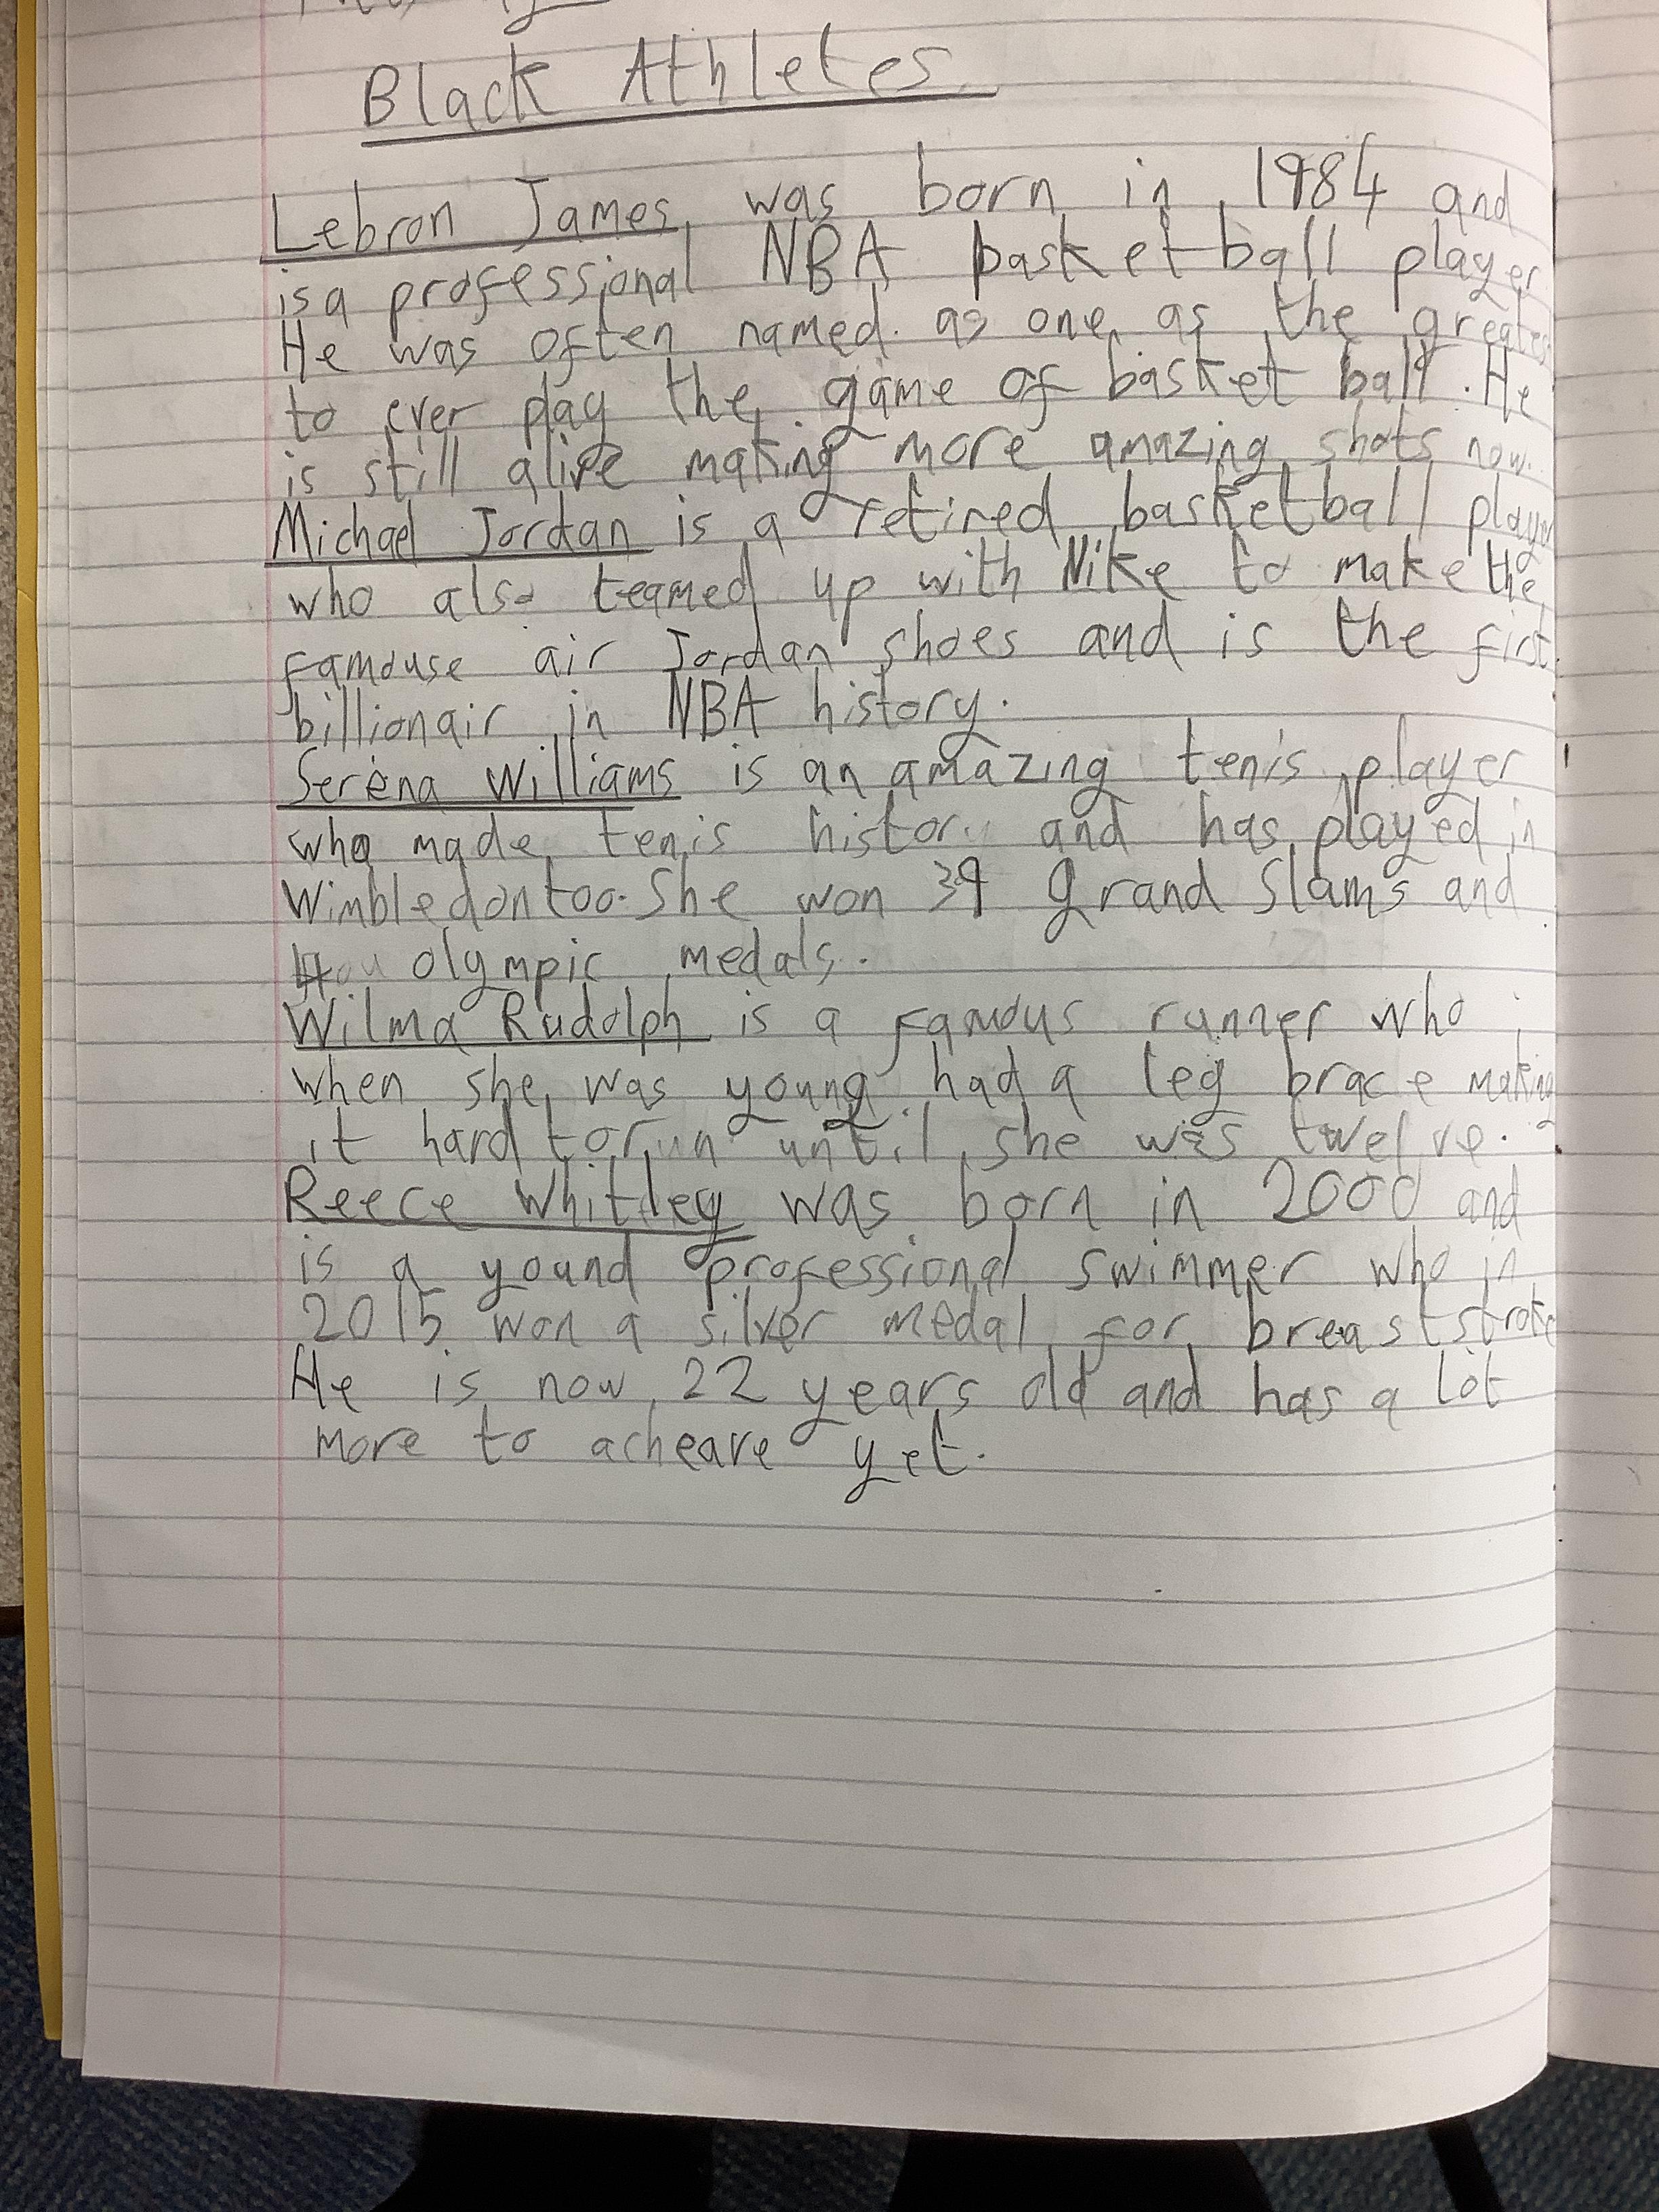 Black Athletes
Lebron James was born in 1984 and
is a professional NBA basketball player
He was often named as one as the greates
to ever play the game of basket ball. He
is still alive making more amazing shots now.
Michael Jordan is a retired basketball player
who also teamed up with Nike to make the
famouse air Jordan shoes and is the first
billionair in NBA history.
Serena Williams is an amazing tenis player
who made tenis history and has played in
Wimbledon too. She won 39 grand Slams and
4 olympic medals.
Wilma Rudolph is a famous runner who
when she was young had a leg brace making
it hard to run until she was twelve.
Reece Whitley was born in 2000 and
is a yound professional swimmer who in
2015 won a silver medal for breaststroke
He is now 22 years old and has a lot
more to acheave yet.